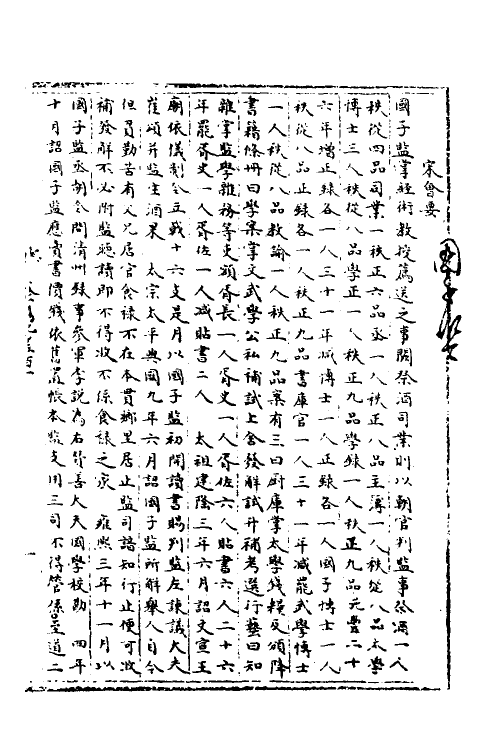 宋會要
國子監
國子監掌經術教授薦送之事闕祭酒司業則以朝官判監事祭酒一人
秩從四品司業一秩正六品丞一人秩正八品主簿一人秩從八品太學
博士三人秩從八品學正一人秩正九品學錄一人秩正九品元豐二十
六年增正錄各一人三十一年減博士一人正錄各一人國子博士一人
秩從八品正錄各一人秩正九品書庫官一人三十一年減罷武學博士
一人秩從八品教諭一人秩正九品案有三曰厨庫掌太學錢糧及頒降
書籍條冊曰學案掌文武學公私補試上舍發解試升補考選行藝曰知
雜掌監學雜務等吏額胥長一人胥史一人胥佐六人貼書六人二十六
年罷胥史一人胥佐一人減貼書二人 太祖建隆三年六月詔文宣王
廟依儀制令立戟十六支是月以國子監初開讀書賜判監左諫議大夫
崔頌并監生酒果 太宗太平興國九年六月詔國子監所解舉人自今
但員勤苦有父兄居官食祿不在本貫鄉里居止監司諳知行止便可收
補發解不必附監聽讀即不得收不係食祿之家 雍熙三年十一月以
國子監丞朝令問清州錄事參軍李說為右贊善大夫國學校勘 四年
十月詔國子監應賣書價錢依舊置帳本監支用三司不得管係至道二